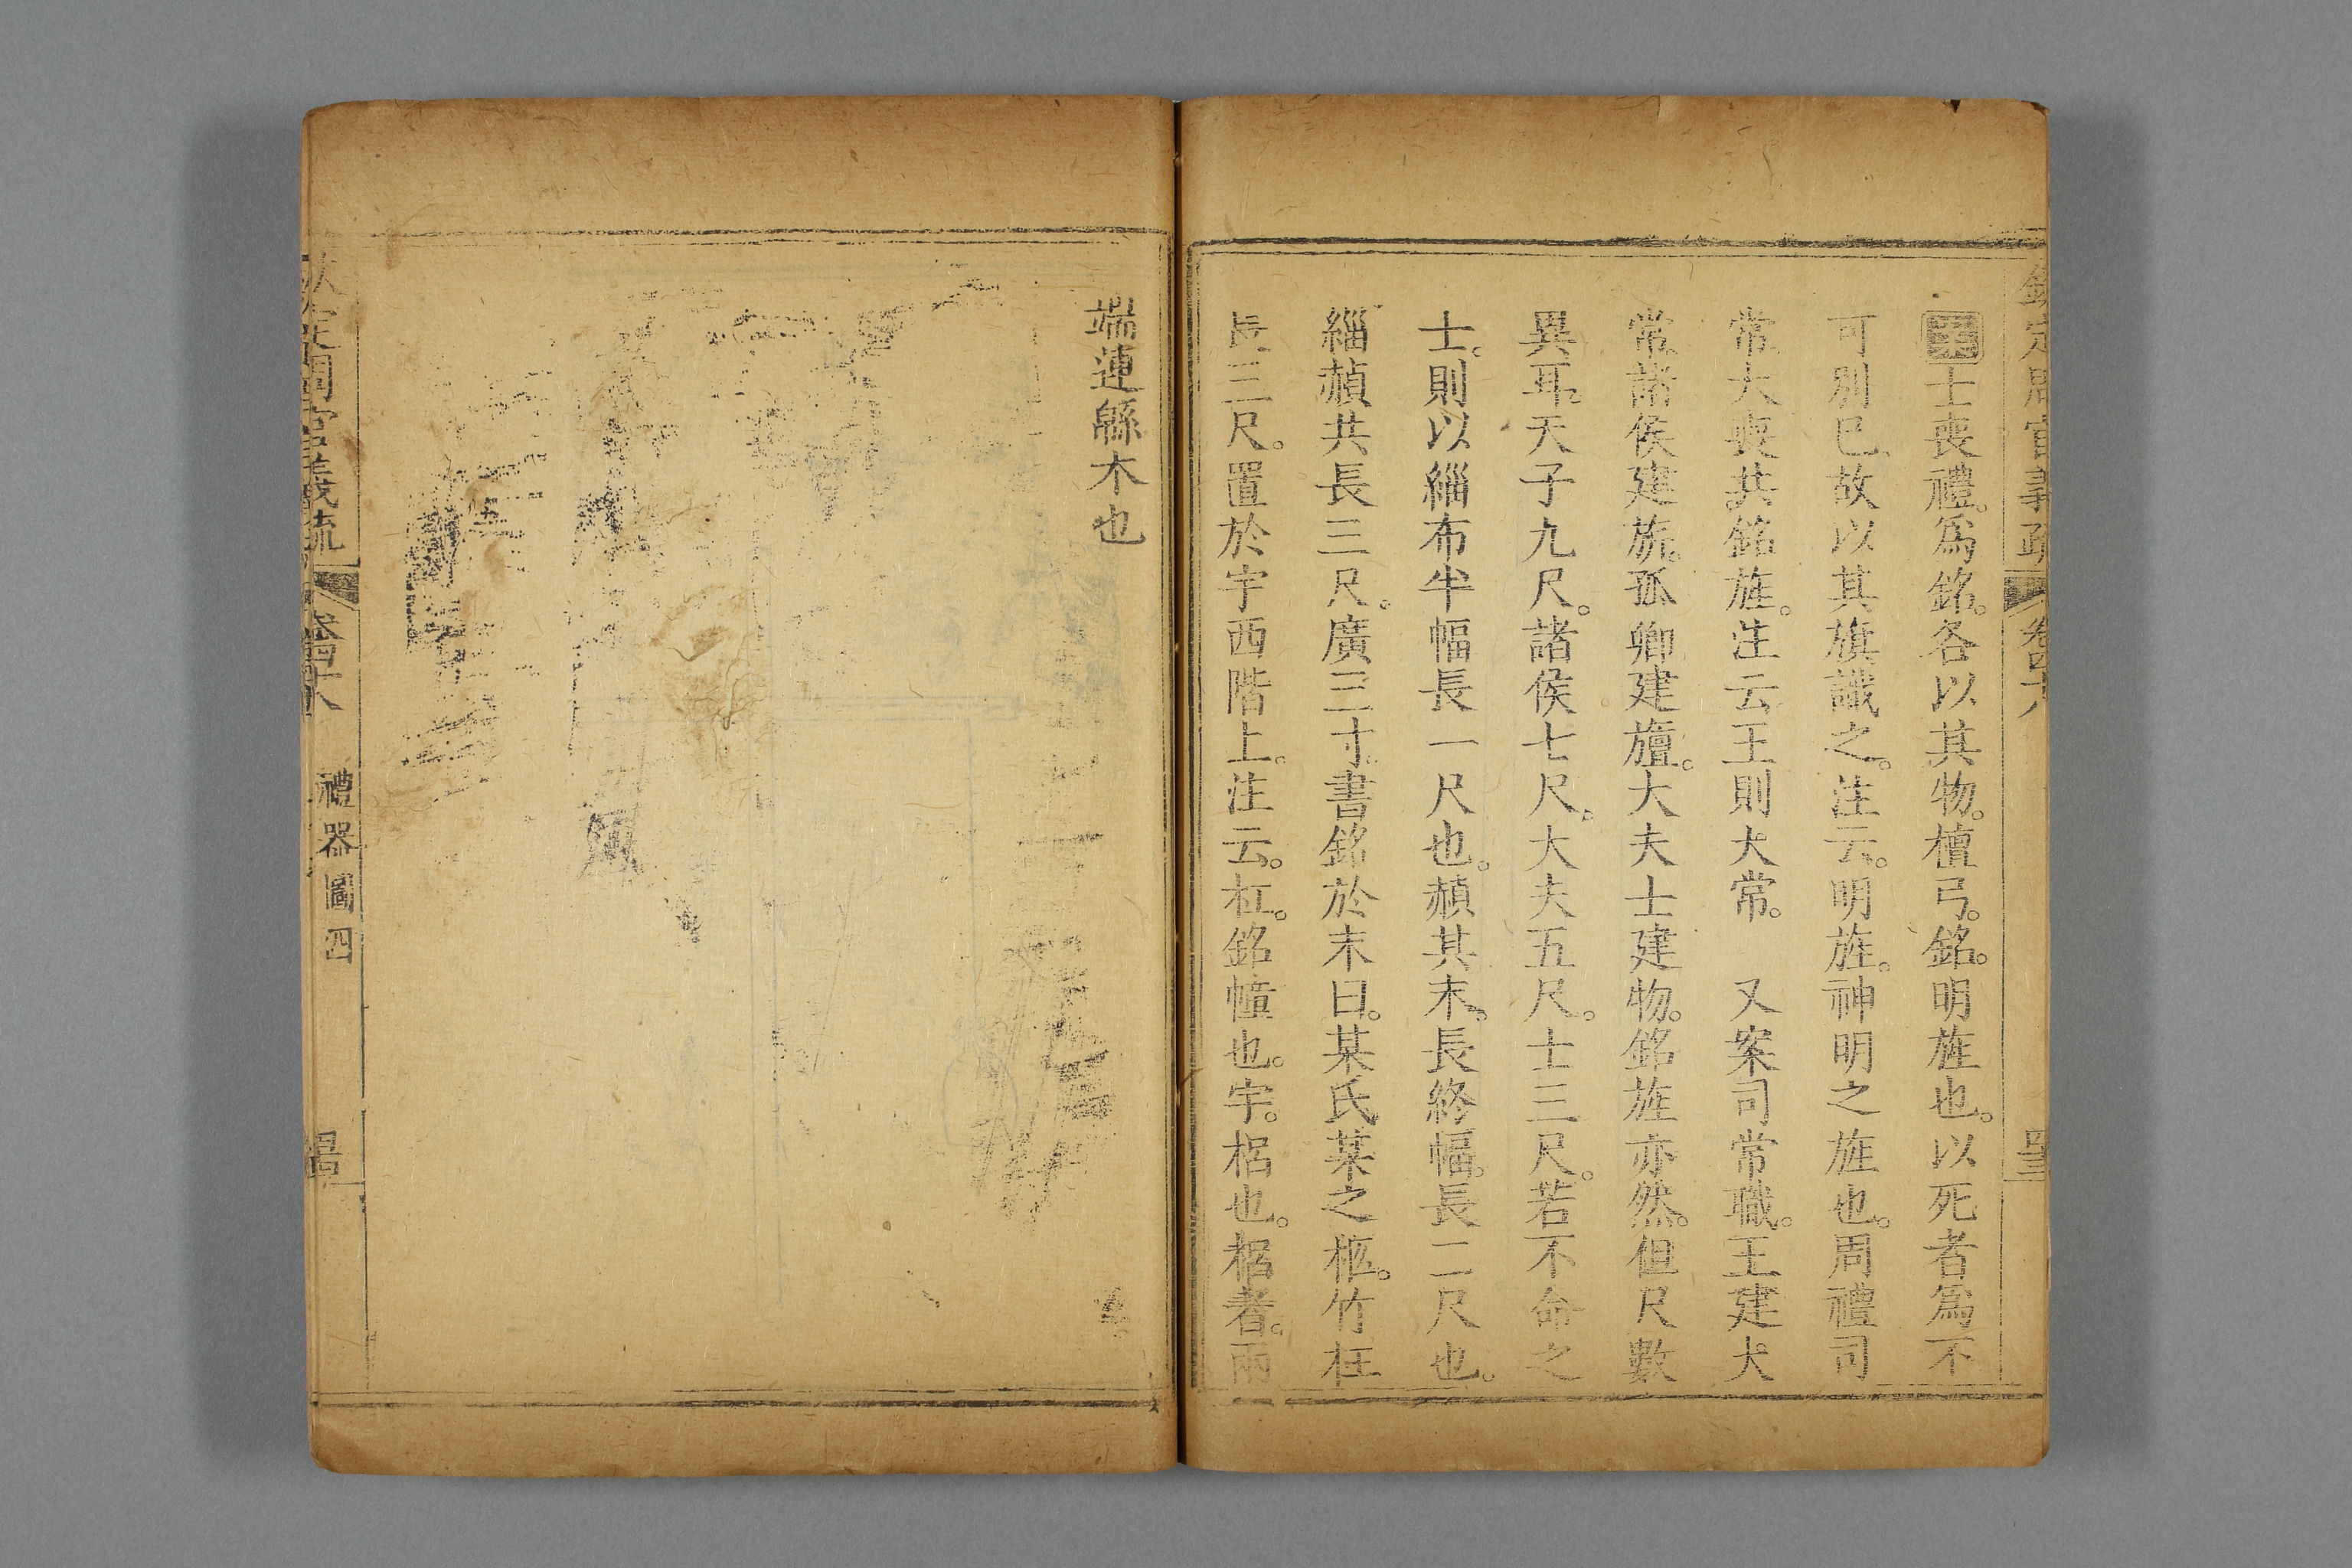 欽定周官義疏 卷四十八 
士喪禮。爲銘。各以其物。檀弓。銘。明旌也。以死者爲不
可別已、故以其旗識之。注云。明旌。神明之旌也。周禮司
常。大喪共銘旌。注云王則大常。 又案司常職。王建大
常。諸侯建旂。孤卿建旜。大夫士建物。銘旌亦然。但尺數
異耳。天子九尺。諸侯七尺。大夫五尺。士三尺。若不命之
士。則以緇布半幅長一尺也。赬其末。長終幅。長二尺也。
緇赬共長三尺。廣三寸。書銘於末曰。某氏某之柩。竹杠
長三尺。置於宇西階上。注云。杠。銘橦也。宇。梠也。梠者。兩
端連緜木也
欽定周官義疏 卷四十八 禮器圖四